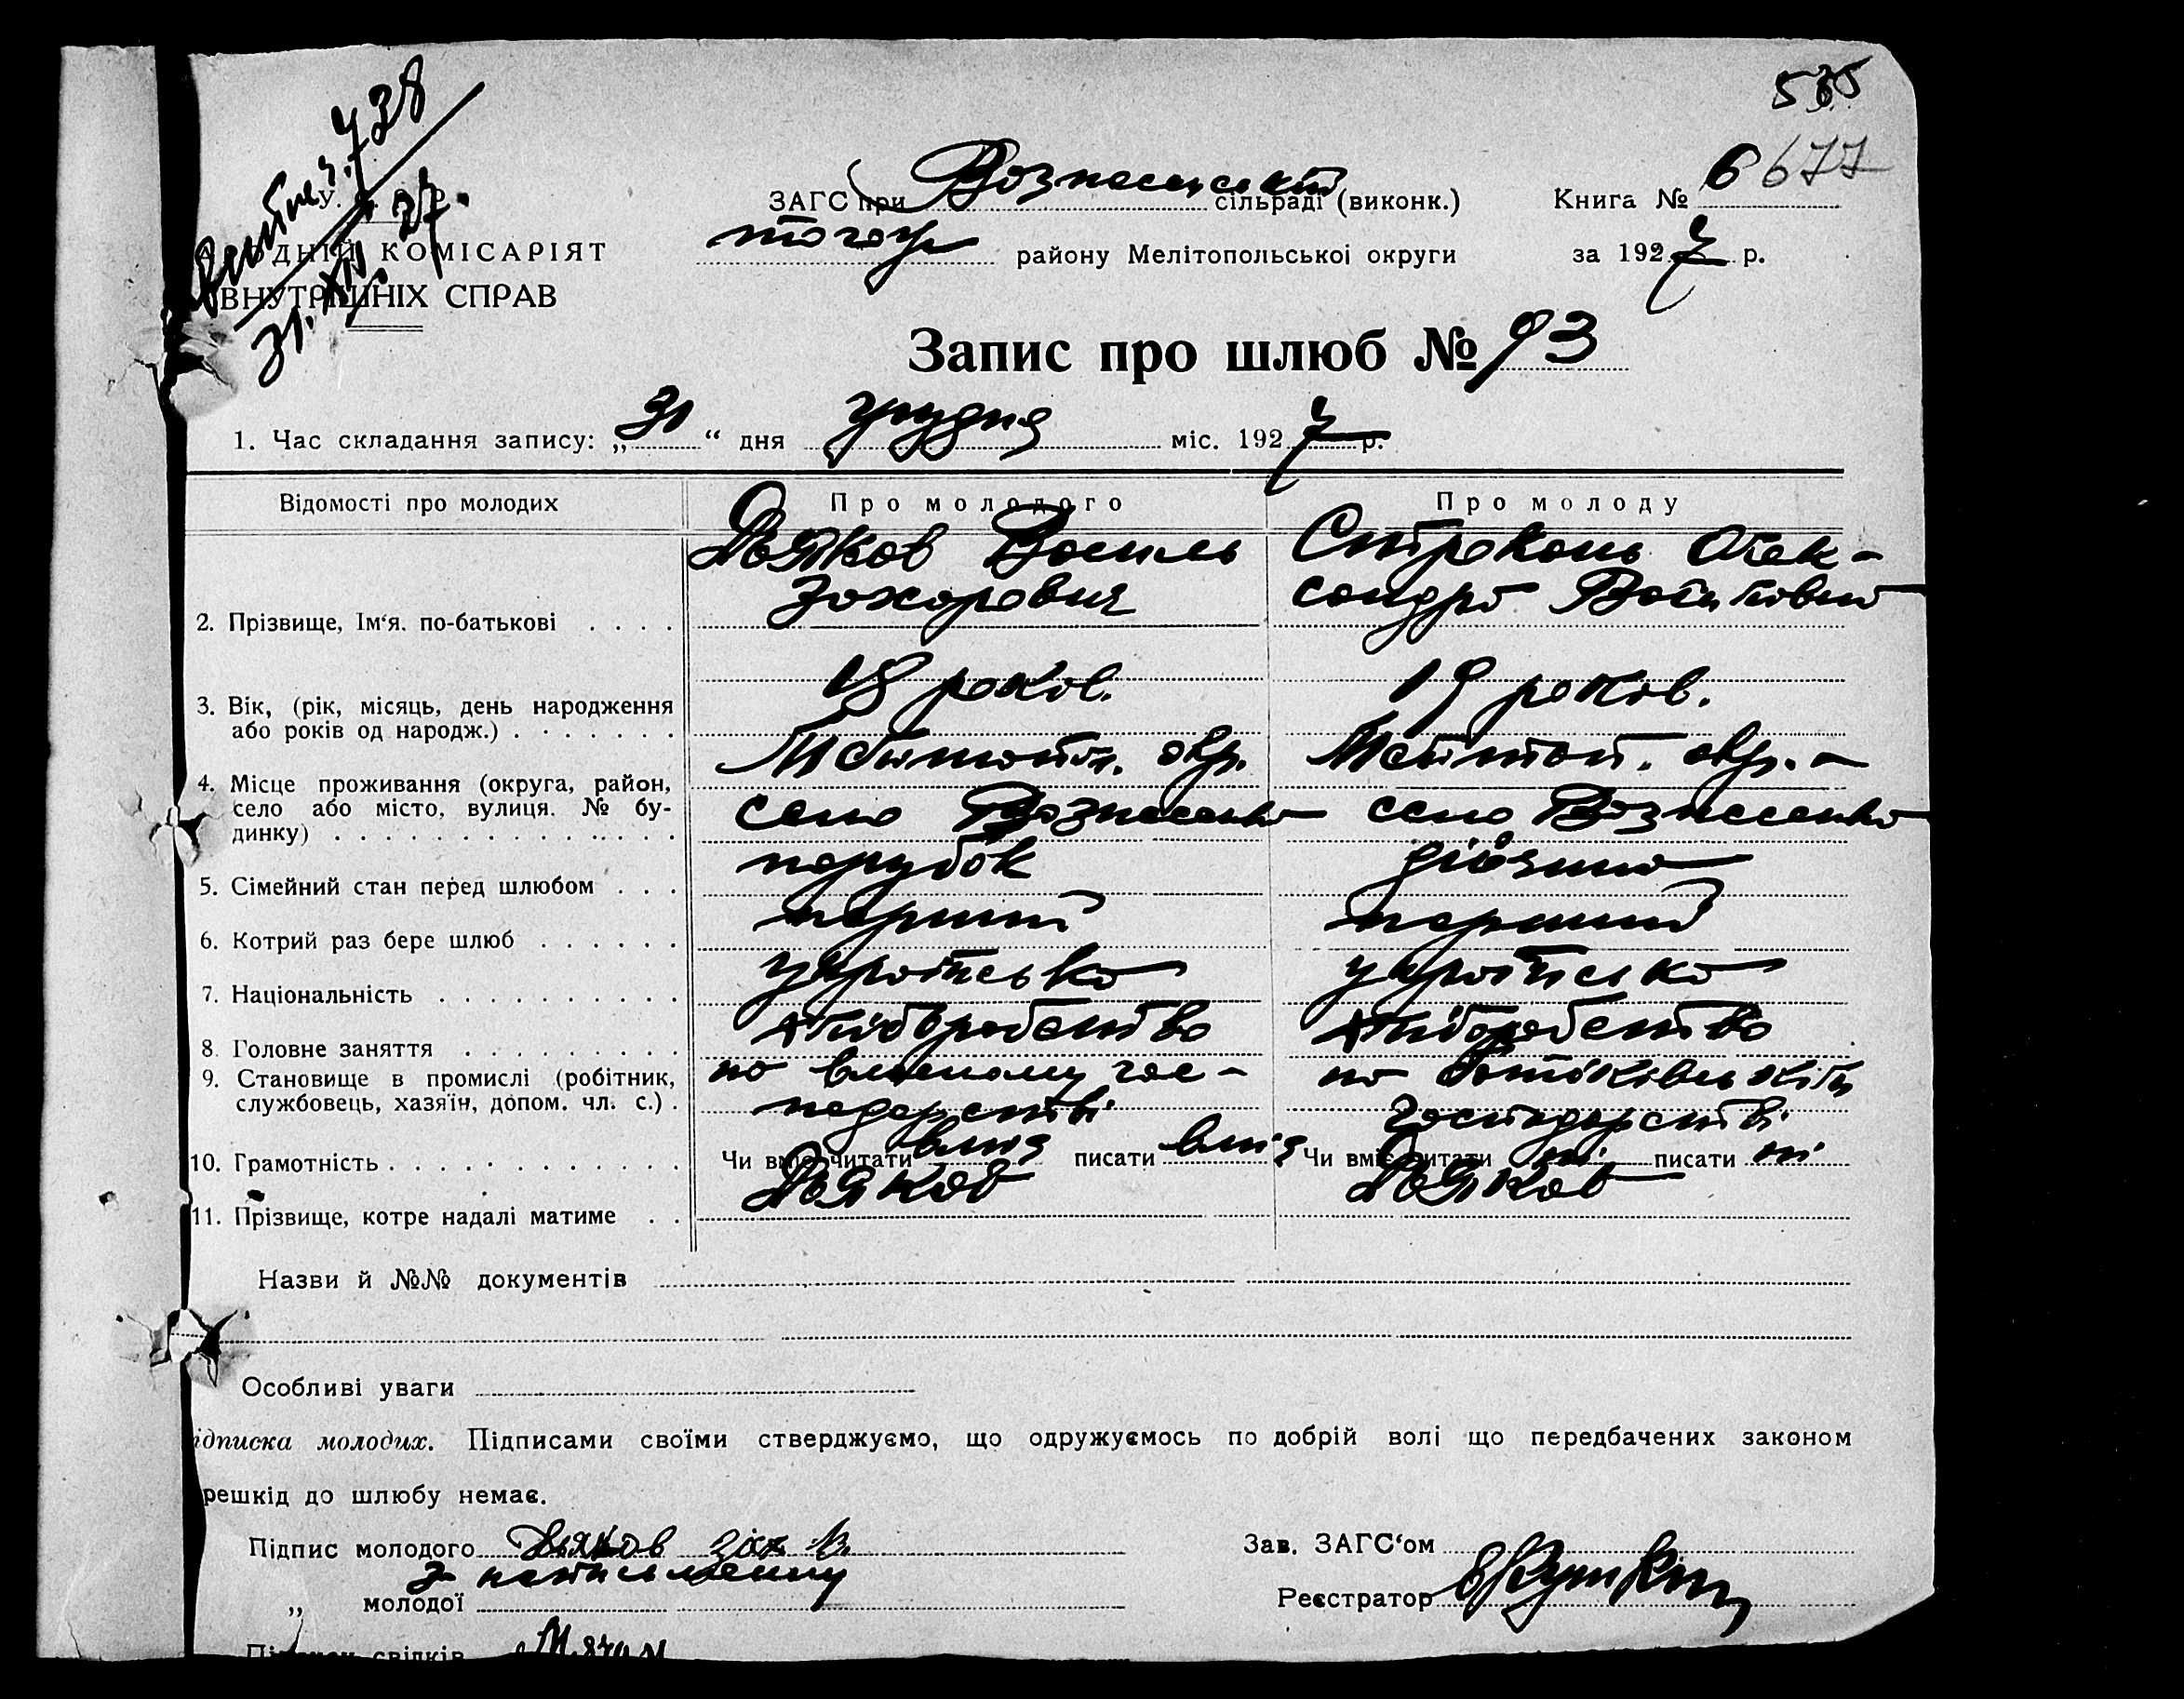 535
738
6 677
31. XII 27.
ЗАГС при Вознесенській сільраді (виконк.) Книга №
КОМІСАРІЯТ
тогож району Мелітопольської округи за 1927 р.
ВНУТРІШНІХ СПРАВ
Запис про шлюб № 93
1. Час складання запису: „31“ дня грудня міс. 1927 р.
Відомості про молодих Про молодого Про молоду
Дьяков Василь Строкань Олек-
Захарович сандра
2. Прізвище, Ім‘я. по-батькові . . . .
18 роков. 19 роков.
3. Вік, (рік, місяць, день народження
або років од народж.) . . . . . . .
Мелітопол. окр. Мелітоп. окр. –
4. Місце проживання (округа, район,
село або місто, вулиця. № бу-
динку) . . . . . . . . . . . . . .
село Вознесенка село Вознесенка
парубок дівчина
5. Сімейний стан перед шлюбом . . .
перший перший
6. Котрий раз бере шлюб . . . . . .
українська українська
7. Національність . . . . . . . . . .
хліборобство хліборобство
8. Головне заняття . . . . . . . . .
9. Становище в промислі (робітник,
службовець, хазяїн, допом. чл. с.) .
на власному гос- на батьківський
подарстві господарстві
10. Грамотність . . . . . . . . . . . . Чи вміє читати вміє писати вміє Чи вміє читати ні писати ні
Дьяков Дьяков
11. Прізвище, котре надалі матиме . .
Назви й №№ документів
Особливі уваги
ідписка молодих. Підписами своїми стверджуємо, що одружуємось по добрій волі що передбачених законом
решкід до шлюбу немає.
Підпис молодого Дьяков Зав. ЗАГС‘ом
„ молодої Реєстратор
свідків